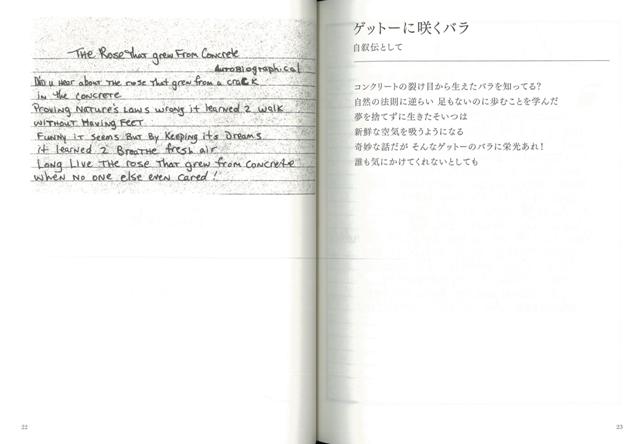 The Rose That grew From Concrete
Autobiographical
Did u Hear about The rose That grew from a crack
in the concrete
Proving Nature's Laws wrong it learned 2 walk
without Having Feet
Funny it seems But By Keeping its Dreams
it learned 2 Breathe fresh air
Long Live The rose That grew from concrete
when no one else even cared!
22
ゲットーに咲くバラ
自叙伝として
コンクリートの裂け目から生えたバラを知ってる?
自然の法則に逆らい 足もないのに歩むことを学んだ
夢を捨てずに生きたそいつは
新鮮な空気を吸うようになる
奇妙な話だが そんなゲットーのバラに栄光あれ!
誰も気にかけてくれないとしても
23